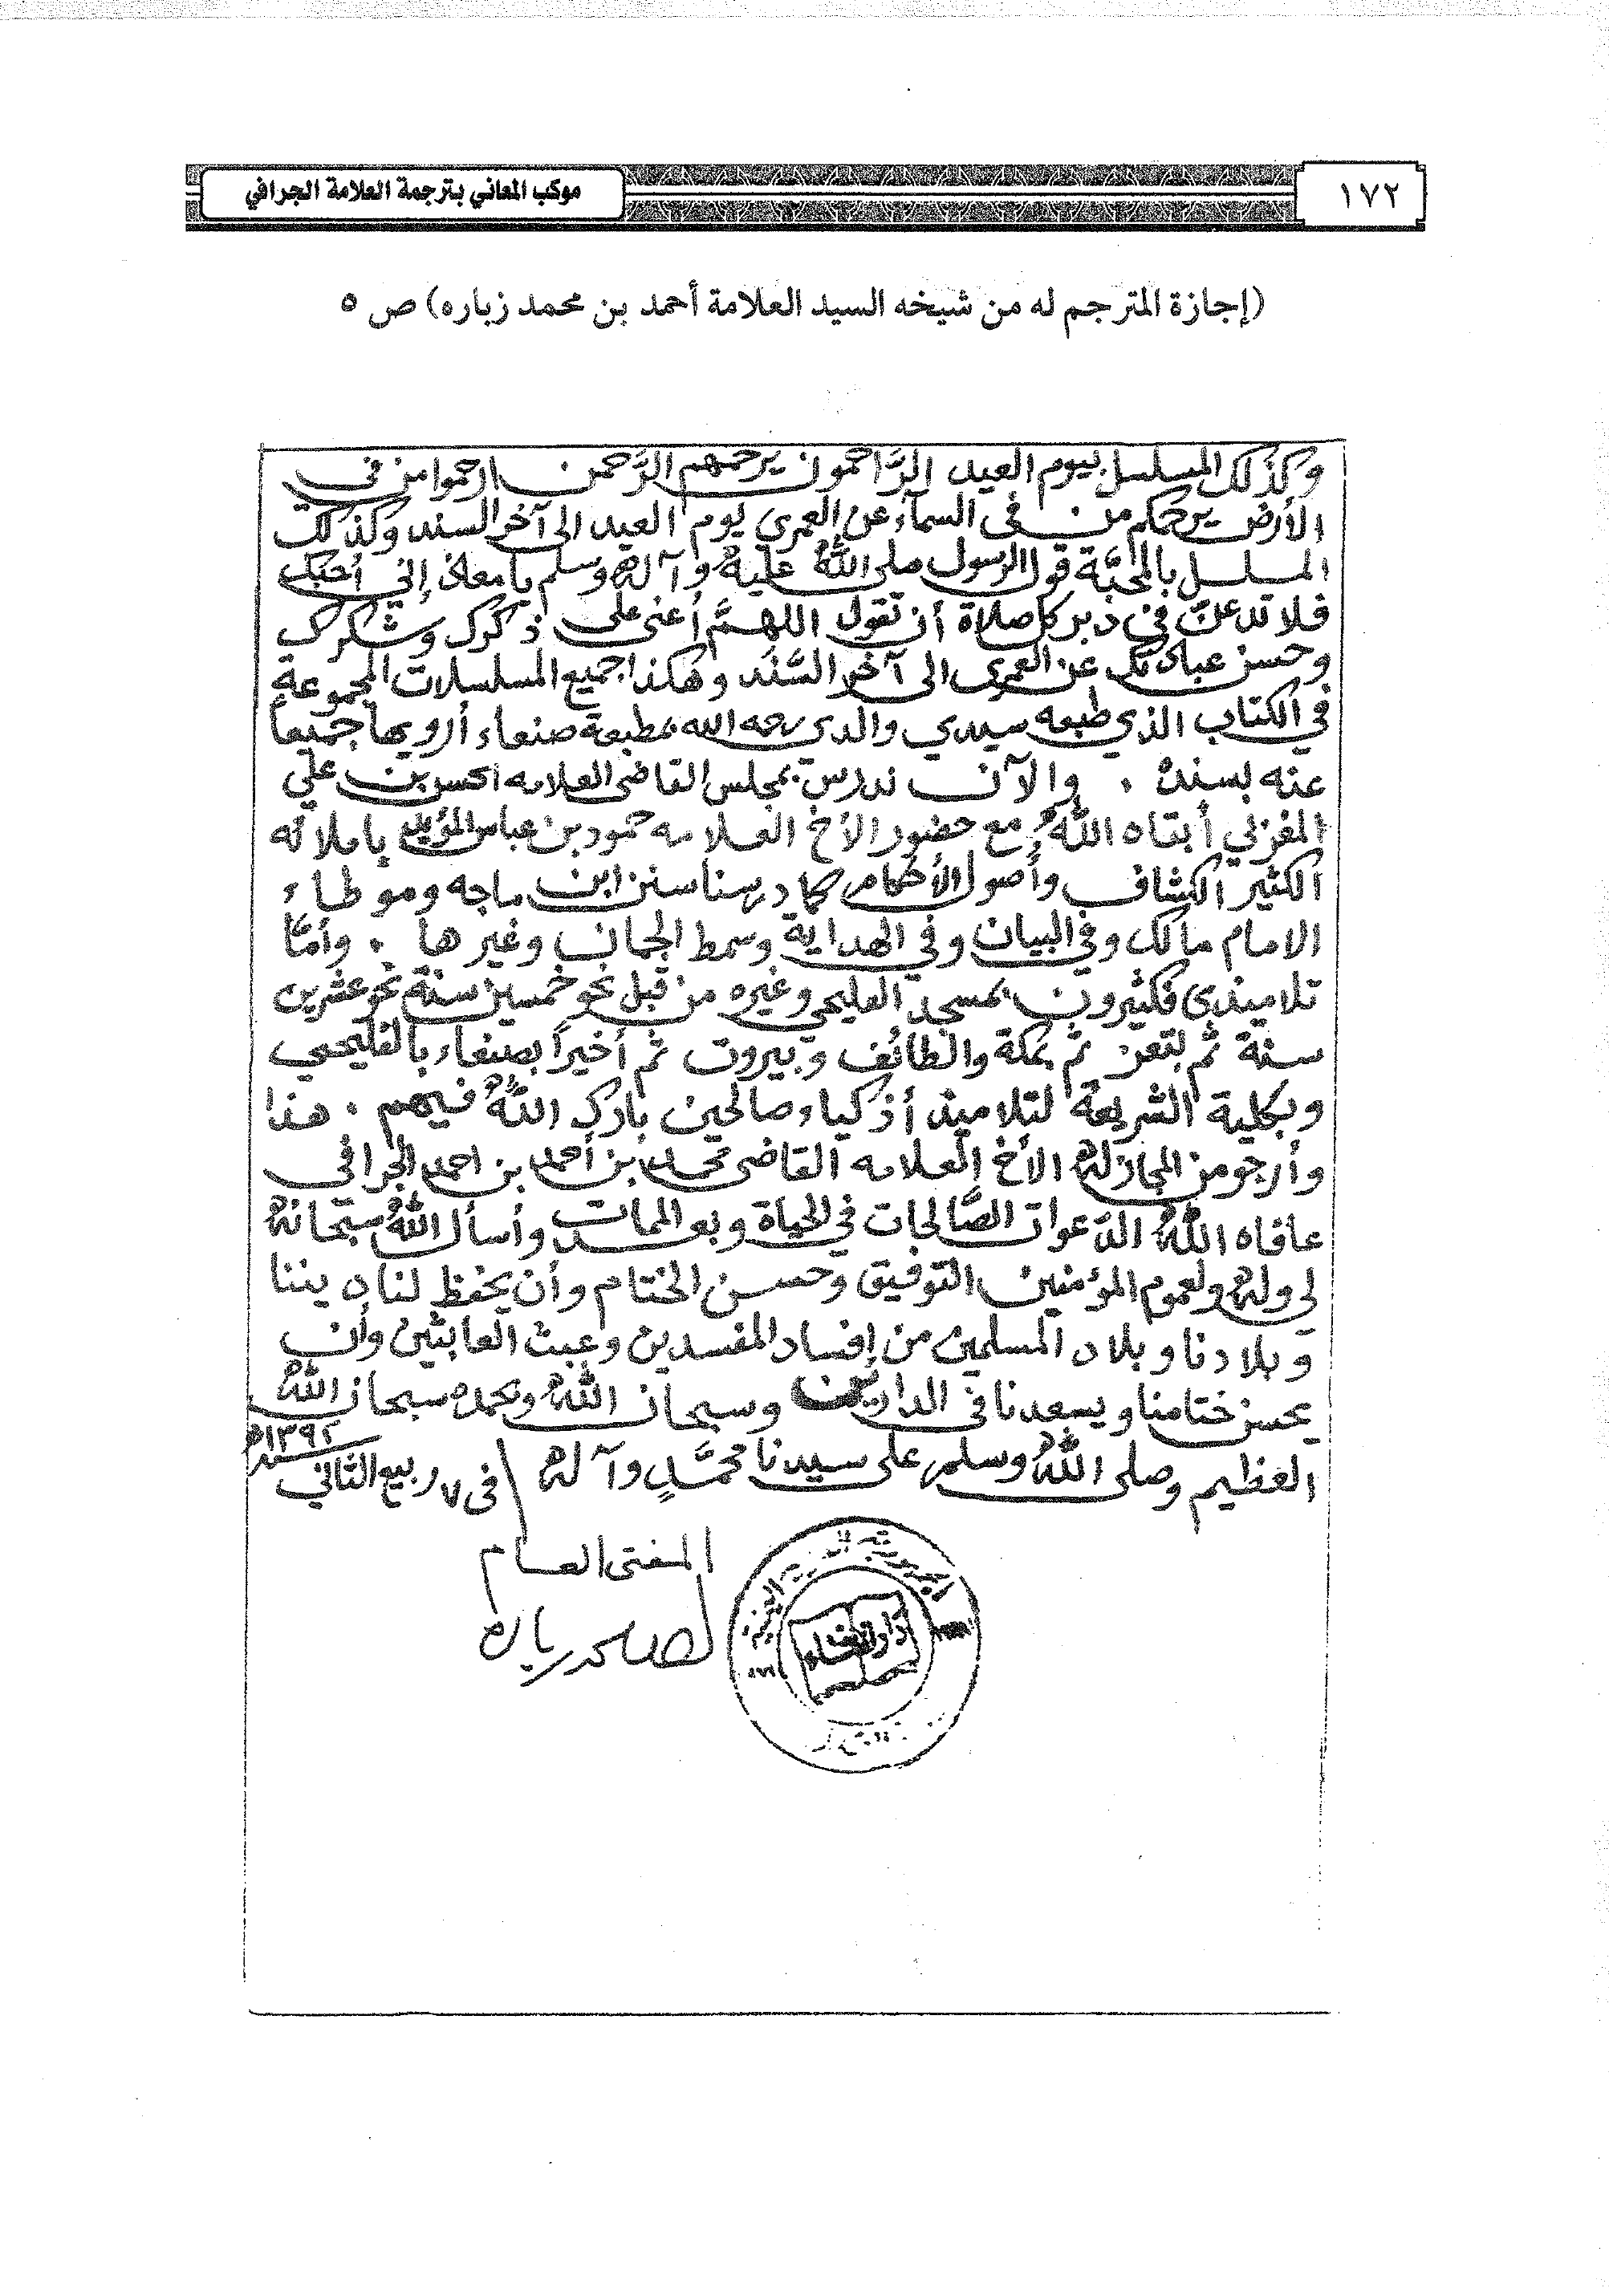 ١٧٢
موكب المعاني بترجمة العلامة الجرافي
(إجازة المترجم له من شيخه السيد العلامة أحمد بن محمد زباره) ص ٥
وكذلك المسلسل بيوم العيد الرَّاحمون يرحمهم الرَّحمن ارحموا من في
الأرض يرحمكم من في السماء عن العمري يوم العيد الى آخر السند وكذلك
المسلسل بالمحبّة قول الرسول صلى اللهُ عليه وآله وسلم يا معاذ إني أحبك
فلا تدعنّ في دبر كل صلاة أن تقول اللهمَّ أعنى على ذكرك وشكرك
وحسن عبادتك عن العمرى الى آخر السَّنَد وهكذا جميع المسلسلات المجموعة
في الكتاب الذي طبعه سيدي والدى رحمه الله بمطبعة صنعاء أرويها جميعاً
عنه بسنده . والآن ندرس بمجلس القاضى العلامه الحسن بن علي
المغربي أبقاه اللهُ مع حضور الأخ العلامه حمود بن عباس المؤيد بإملائه
الكثير الكشاف وأصول الأحكام كما درسنا سنن ابن ماجه وموطاء
الامام مالك وفي البيان وفي الهداية وسمط الجمان وغيرها . وأمّا
تلاميذي فكثيرون بمسجد الفليحي وغيره من قبل نحو خمسين سنة نحو عشرين
سنة ثم بتعز ثم بمكة والطائف وبيروت ثم أخيراً بصنعاء بالفليحي
وبكلية الشريعة لتلاميذ أذكياء صالحين بارك اللهُ فيهم . هذا
وأرجو من المجاز له الأخ العلامه القاضى محمد بن أحمد بن احمد الجرافي
عافاه اللهُ الدّعوات الصَّالحات في الحياة وبعد الممات وأسأل اللهُ سبحانه
لي وله ولعموم المؤمنين التوفيق وحسن الختام وأن يحفظ لنا ديننا
وبلادنا وبلاد المسلمين من إفساد المفسدين وعبث العابثين وأن
يحسن ختامنا ويسعدنا في الدارين وسبحان اللهُ وبحمده سبحان اللهُ
العظيم وصلى اللهُ وسلم على سيدنا محمَّدٍ وآله في ٧ ربيع الثاني
سنة ١٣٩٢هـ
المفتى العام
احمد محمد زباره
دار الافتاء